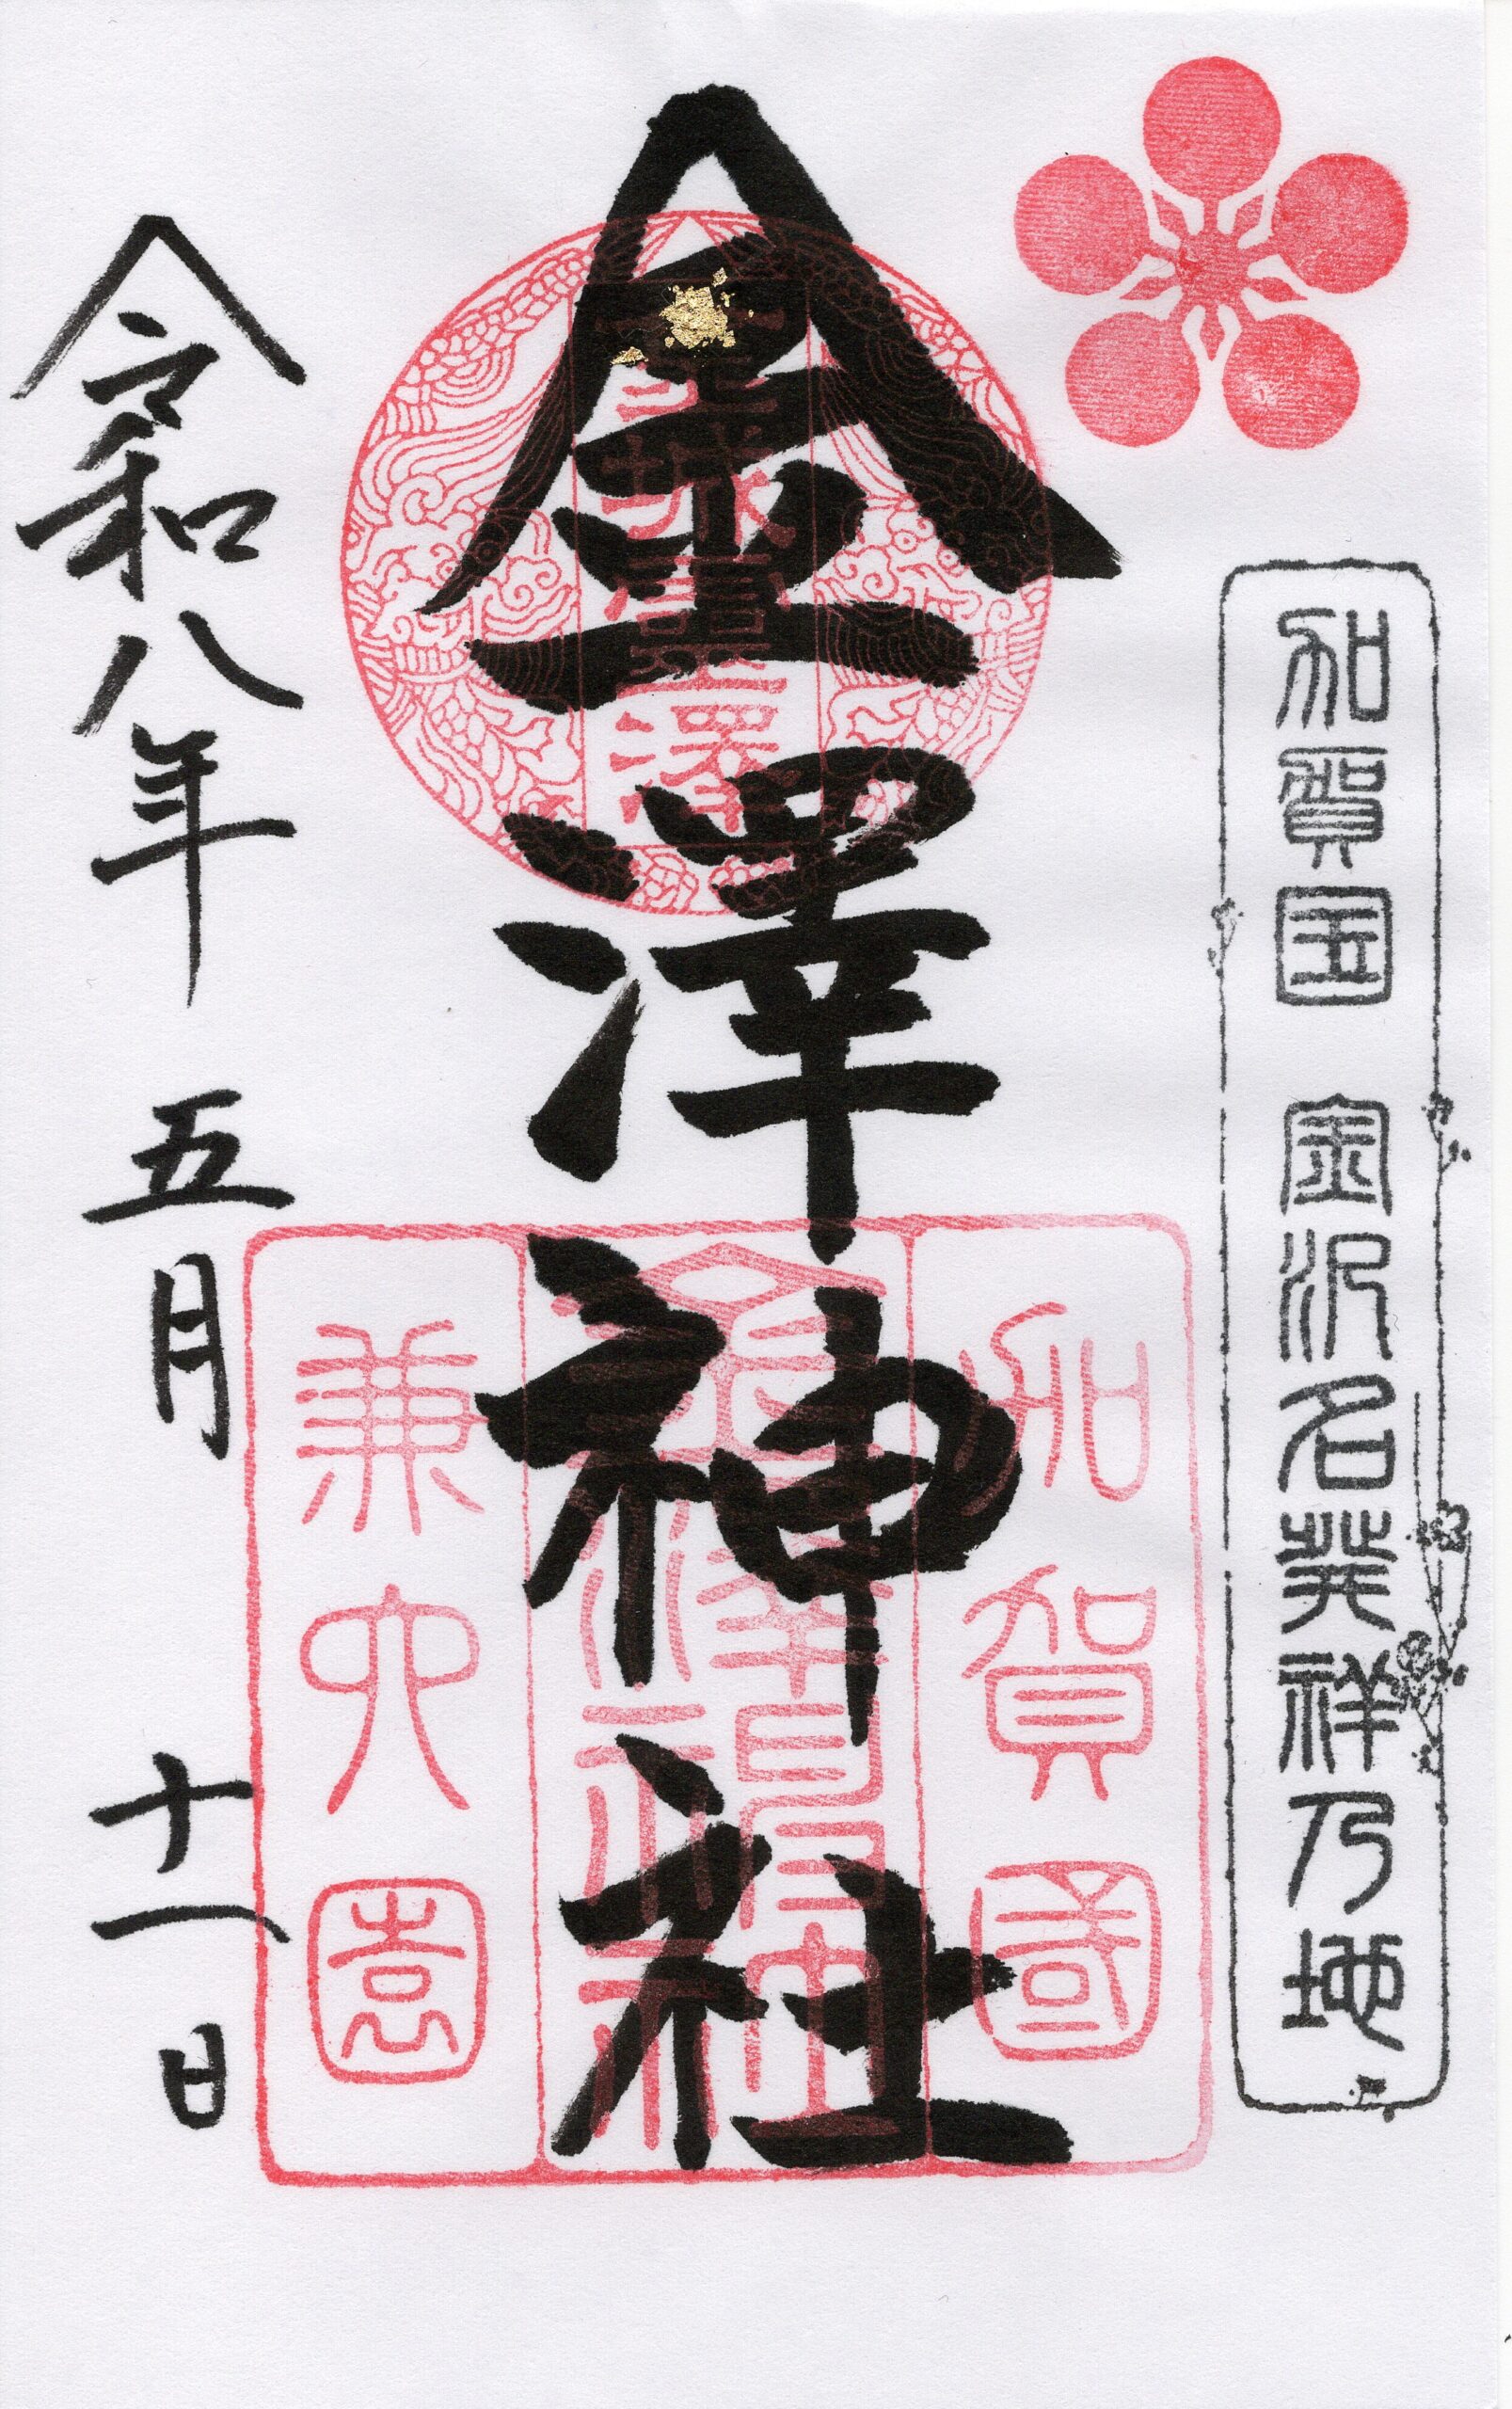 加賀国 金沢名発祥乃地
金澤神社
金城霊澤
加賀國
兼六園
令和八年 五月 十一日